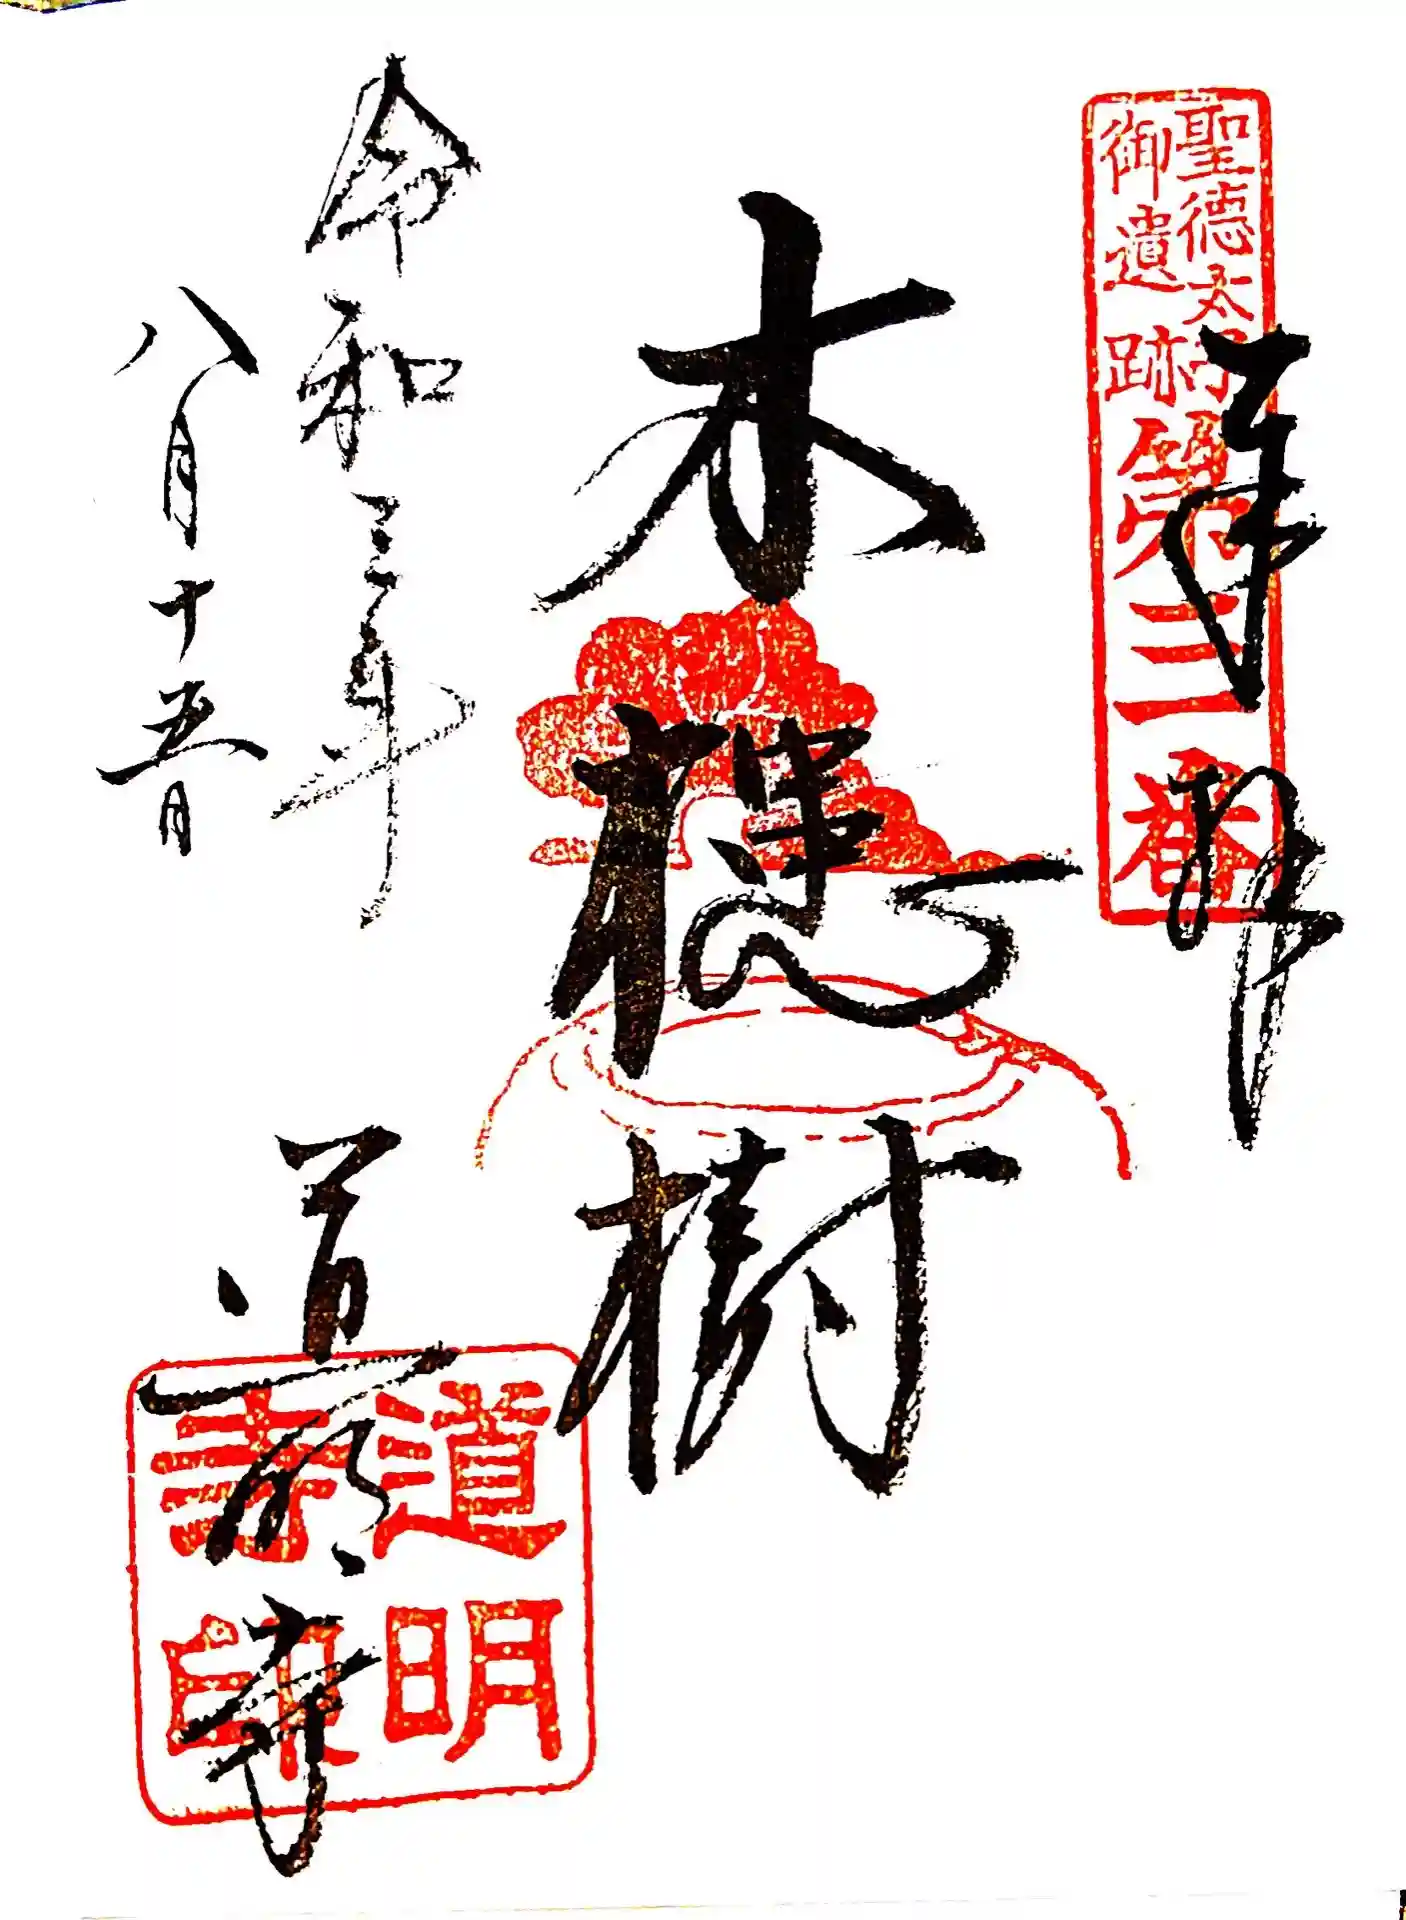 聖徳太子
御遺跡
第三番
奉拝
木槵樹
令和三年
八月十五日
道明寺
道明
寺印